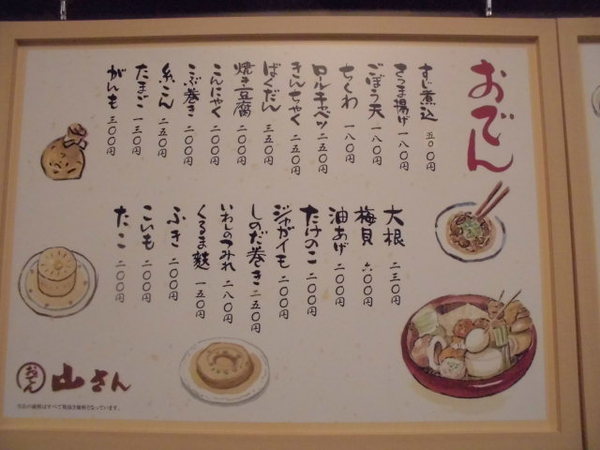 おでん
すじ煮込 五〇〇円
さつま揚げ 一八〇円
ごぼう天 一八〇円
ちくわ 一八〇円
ロールキャベツ 二五〇円
きんちゃく 二五〇円
ばくだん 三五〇円
焼き豆腐 二〇〇円
こんにゃく 二〇〇円
こぶ巻き 二〇〇円
糸こん 二五〇円
たまご 一三〇円
がんも 三〇〇円
大根 二三〇円
梅貝 六〇〇円
油あげ 二〇〇円
たけのこ 二〇〇円
ジャガイモ 二〇〇円
しのだ巻き 二五〇円
いわしのつみれ 二八〇円
くるま麩 一五〇円
ふき 二〇〇円
こいも 二〇〇円
たこ 二〇〇円
おでん 山さん